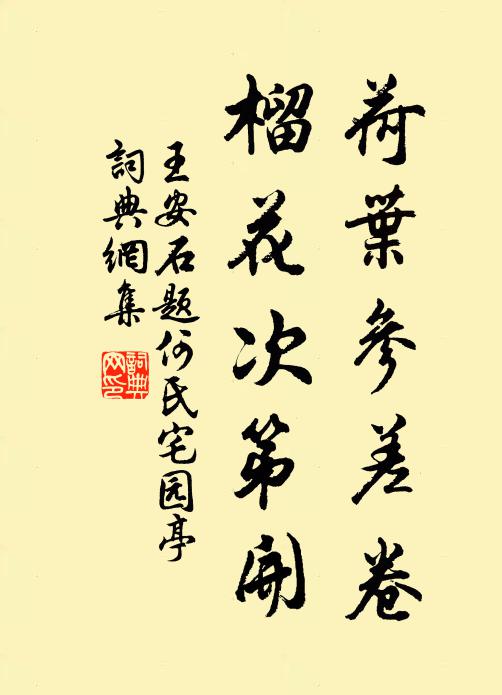 荷葉參差卷
榴花次第開
王安石题何氏宅园亭
詞典網集
詞典
网印